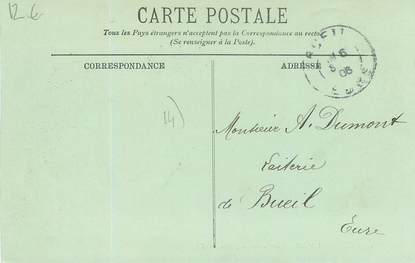 12.6
CARTE POSTALE
Tous les Pays étrangers n'acceptent pas la Correspondance au recto
(Se renseigner à la Poste).
CORRESPONDANCE
ADRESSE
BUEIL
16
06
EURE
14)
Monsieur A. Dumont
Laiterie
de Bueil
Eure